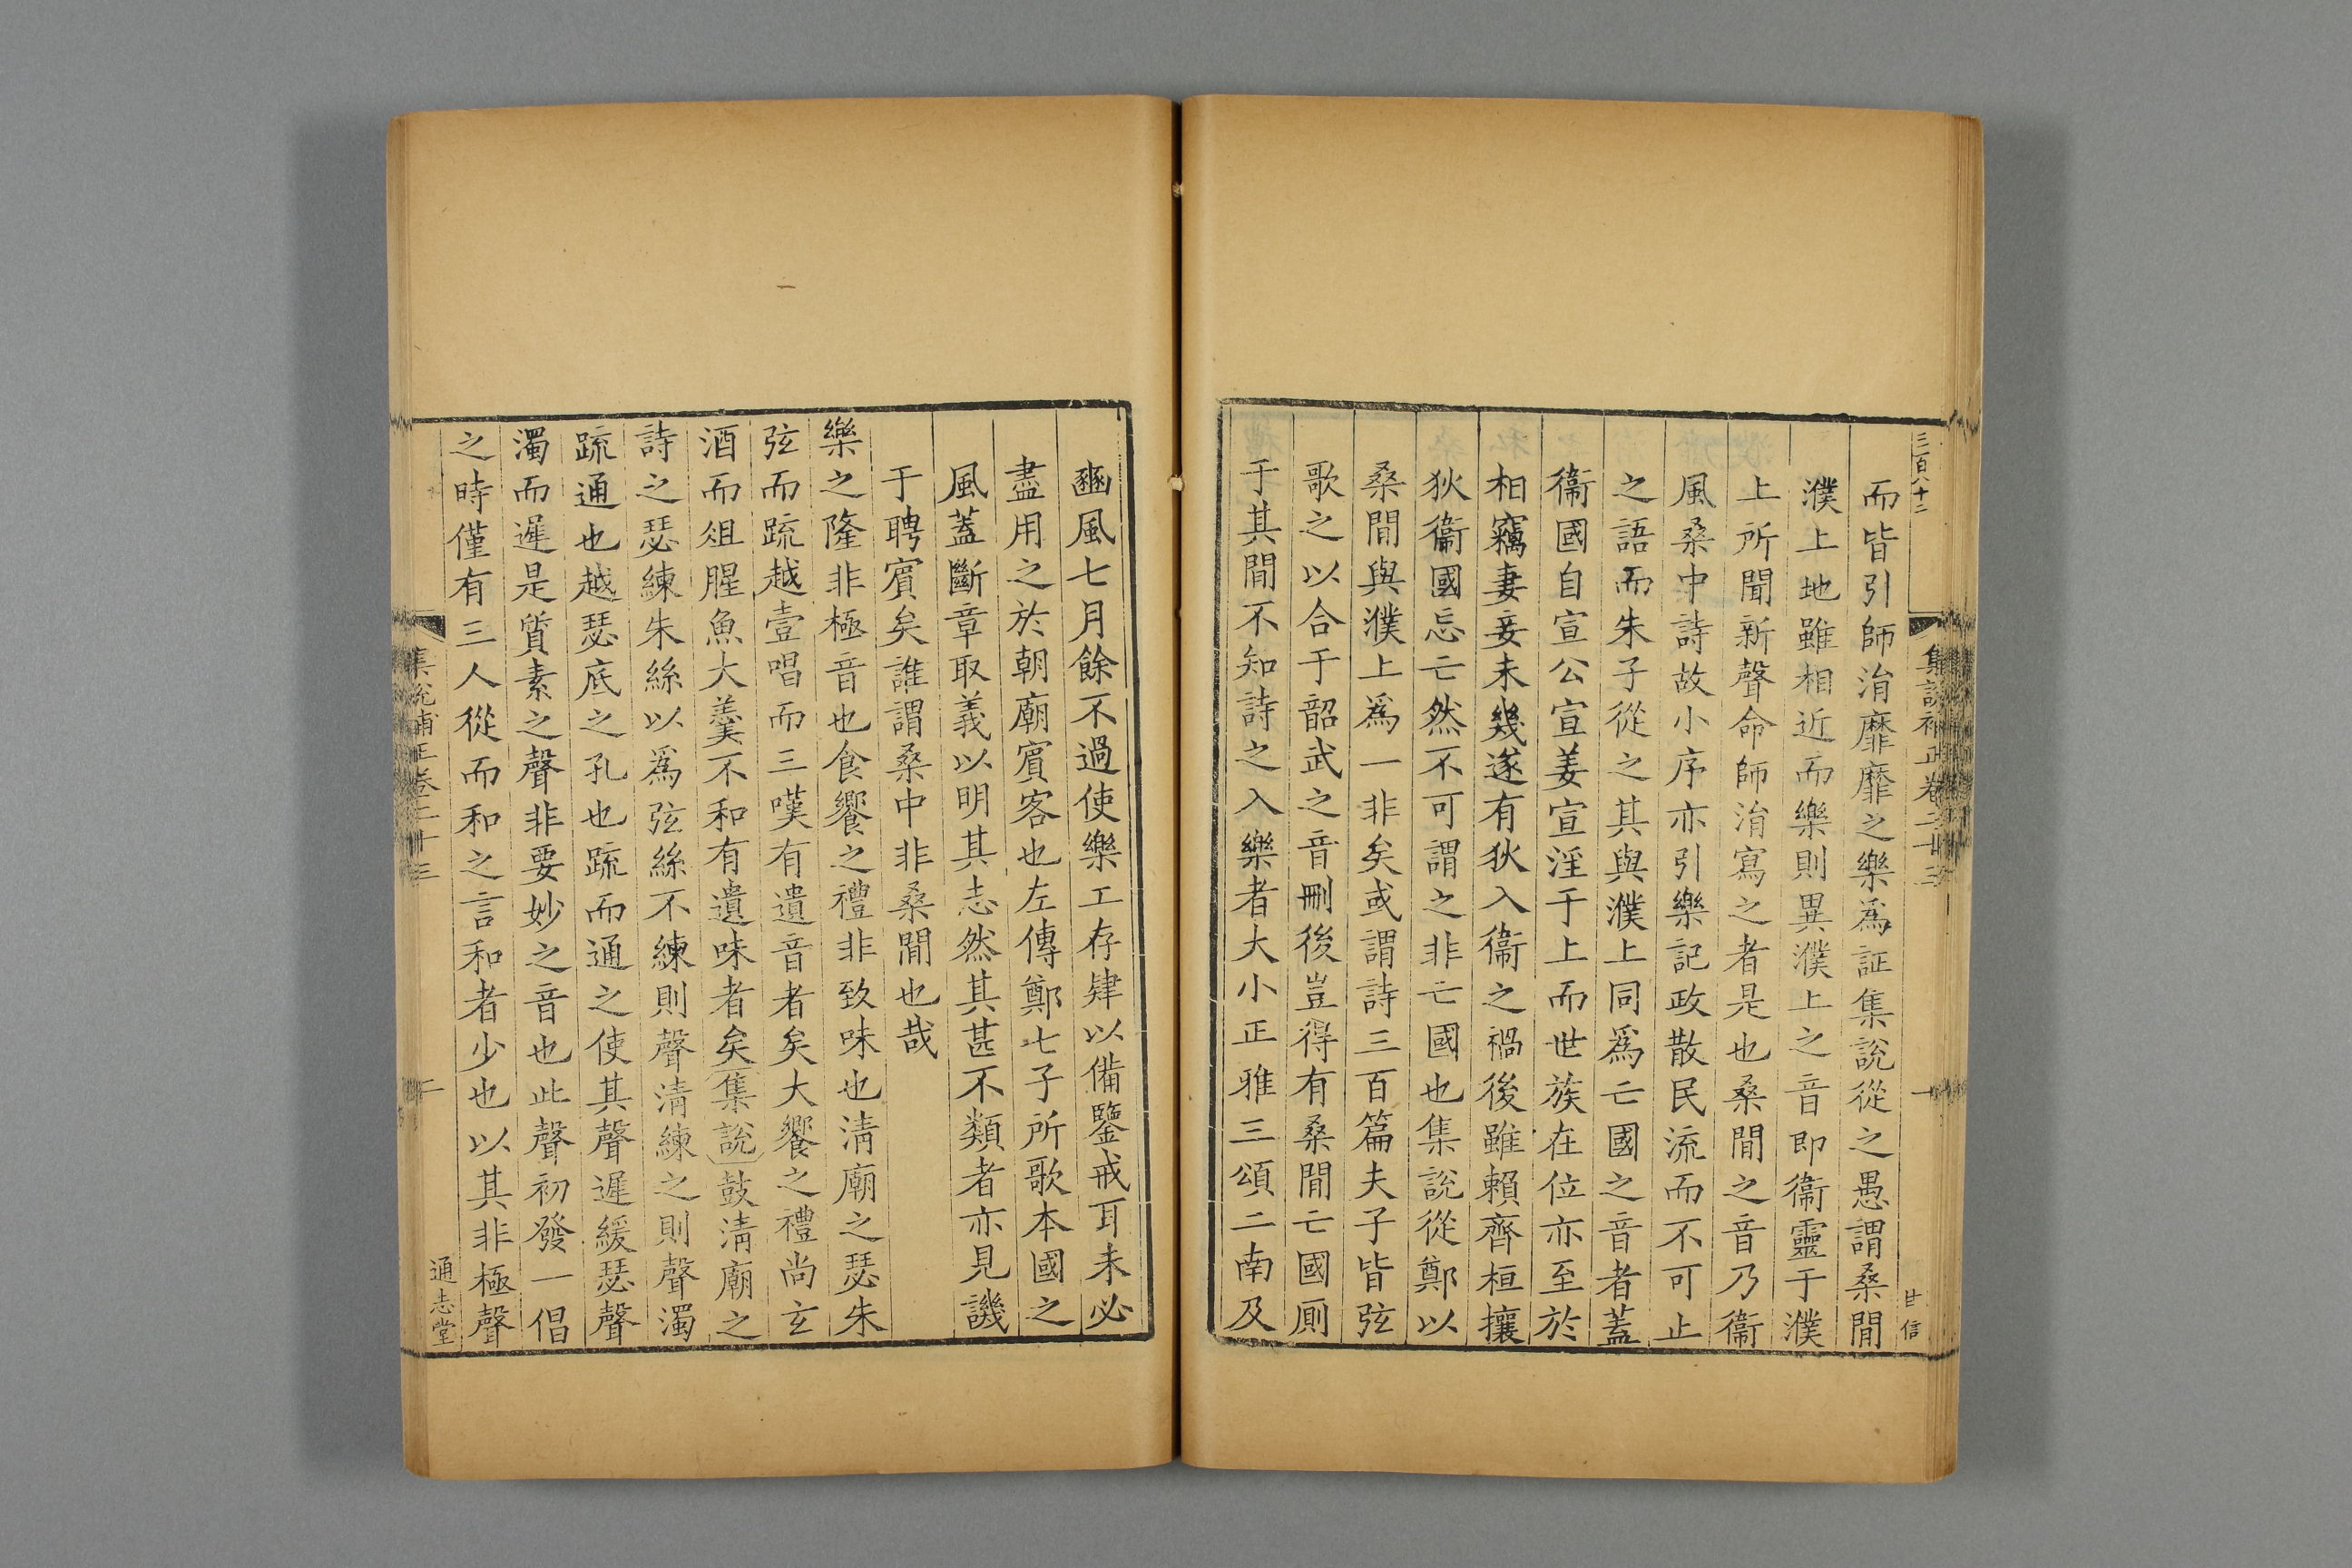 三百八十二
集說補正卷二十三
一
甘信
而皆引師涓靡靡之樂爲証集說從之愚謂桑間
濮上地雖相近而樂則異濮上之音即衞靈于濮
上所聞新聲命師涓寫之者是也桑間之音乃衞
風桑中詩故小序亦引樂記政散民流而不可止
之語而朱子從之其與濮上同爲亡國之音者蓋
衞國自宣公宣姜宣淫于上而世族在位亦至於
相竊妻妾未幾遂有狄入衞之禍後雖賴齊桓攘
狄衞國忘亡然不可謂之非亡國也集說從鄭以
桑間與濮上爲一非矣或謂詩三百篇夫子皆弦
歌之以合于韶武之音刪後豈得有桑間亡國厠
于其間不知詩之入樂者大小正雅三頌二南及
豳風七月餘不過使樂工存肄以備鑒戒耳未必
盡用之於朝廟賓客也左傳鄭七子所歌本國之
風蓋斷章取義以明其志然其甚不類者亦見譏
于聘賓矣誰謂桑中非桑間也哉
樂之隆非極音也食饗之禮非致味也清廟之瑟朱
弦而疏越壹唱而三嘆有遺音者矣大饗之禮尚玄
酒而俎腥魚大羹不和有遺味者矣集說鼓清廟之
詩之瑟練朱絲以爲弦絲不練則聲清練之則聲濁
疏通也越瑟底之孔也疏而通之使其聲遲緩瑟聲
濁而遲是質素之聲非要妙之音也此聲初發一倡
之時僅有三人從而和之言和者少也以其非極聲
集說補正卷二十三
二
通志堂